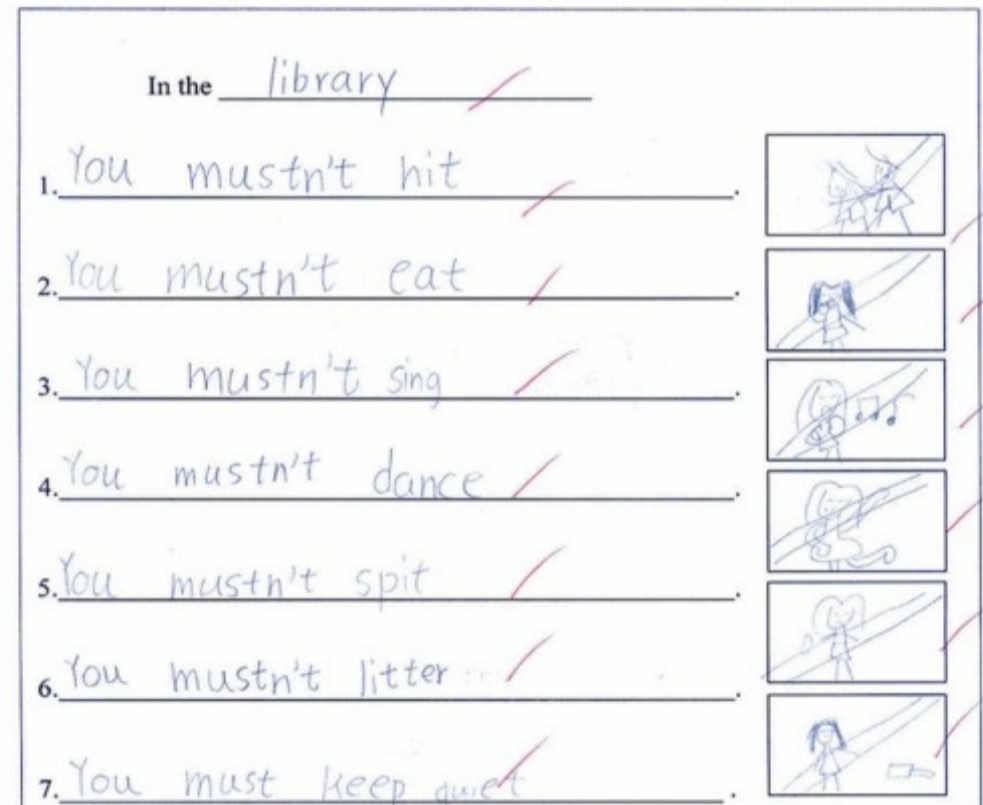 In the library
1. You mustn't hit.
2. You mustn't eat.
3. You mustn't sing.
4. You mustn't dance.
5. You mustn't spit.
6. You mustn't litter.
7. You must keep quiet.